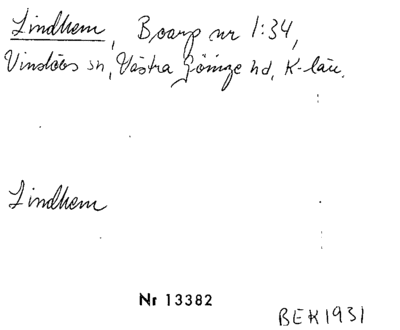 Lindhem, Boarp nr 1:34,
Vinslövs sn, Västra Göinge hd, K-län.
Lindhem
Nr 13382
BEK1931